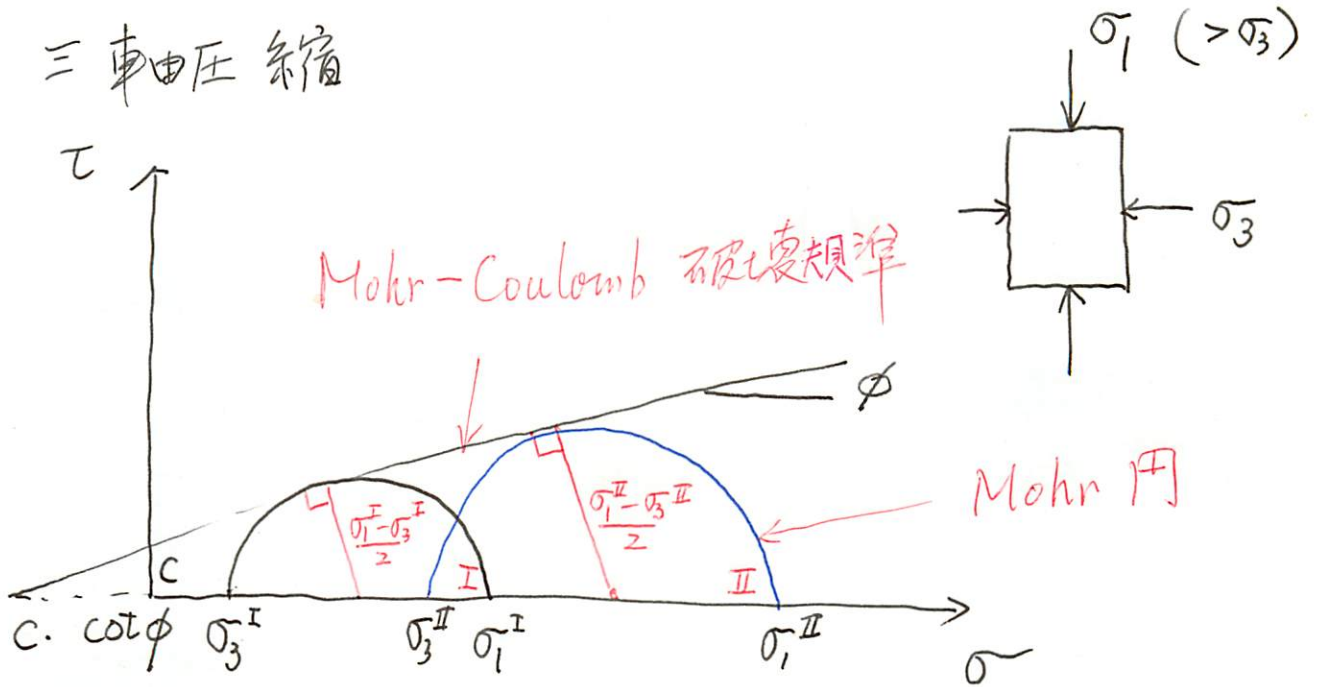 三軸圧縮
σ₁ (>σ₃)
σ₃
τ
Mohr-Coulomb 破壊規準
φ
Mohr 円
(σ₁ᴵ-σ₃ᴵ)/2
I
(σ₁ᴵᴵ-σ₃ᴵᴵ)/2
II
c
c. cotφ σ₃ᴵ σ₃ᴵᴵ σ₁ᴵ σ₁ᴵᴵ σ